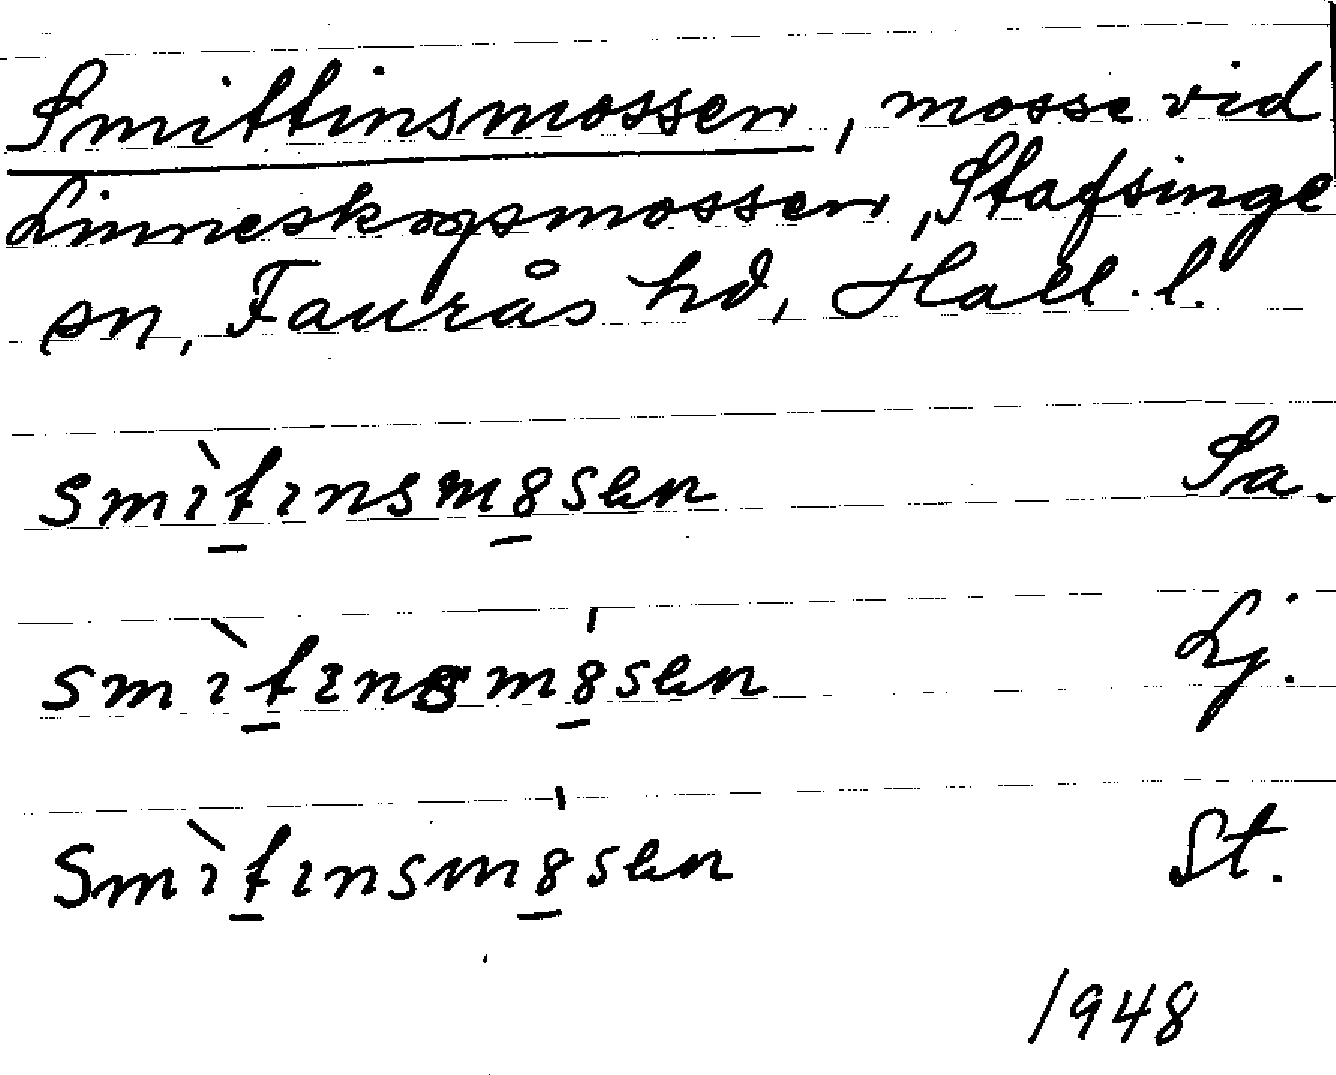 Smittinsmossen, mosse vid
Linneskogsmossen, Stafsinge
sn, Faurås hd, Hall. l.
smìt̠ınsm8̠sen Sa.
smìt̠ınsm8̠́sen Lj.
smìt̠ınsm8̠́sen St.
1948